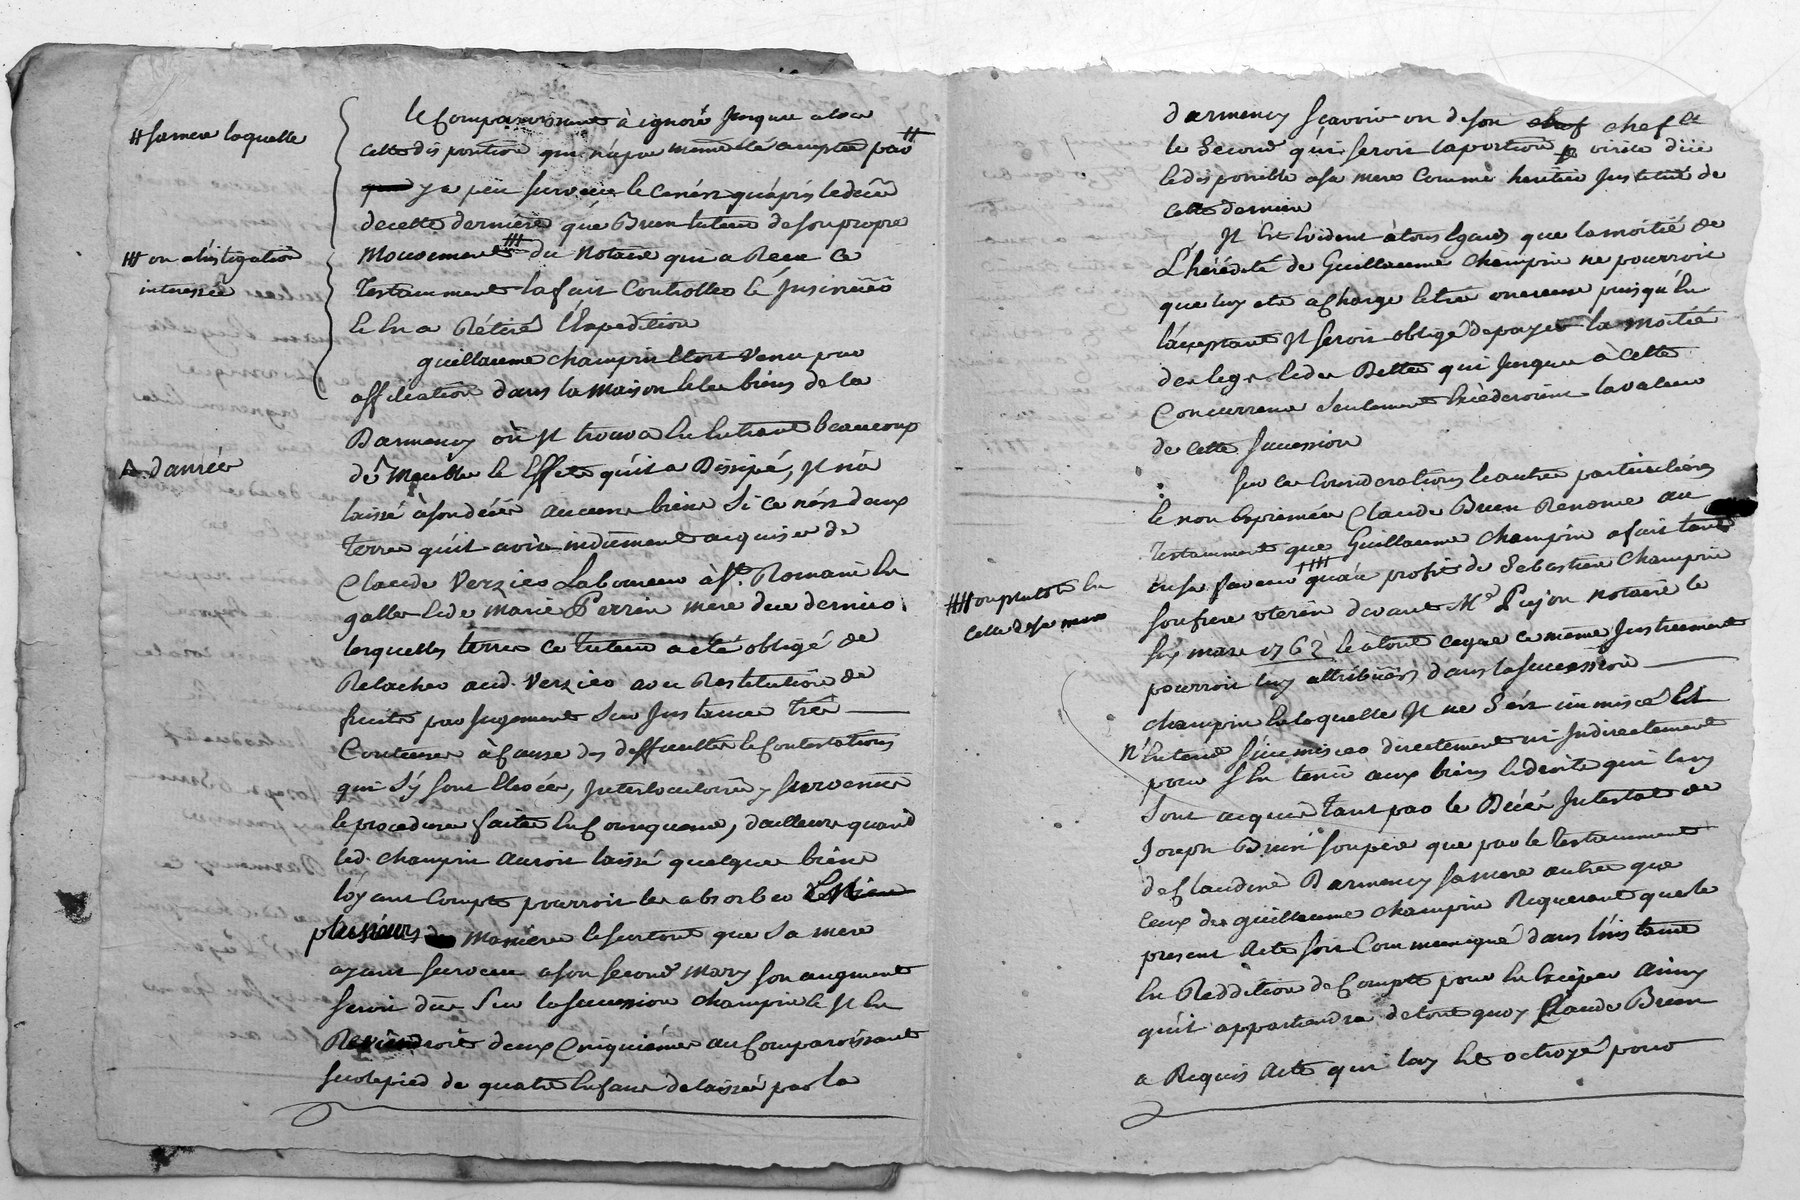 le Comparoissant à ignoré Jusques alors
# sa mere laquelle
cette disposition qui n'a pas meme été acceptée par #
y a peu survecu le ce n'est qu'apres le décés
de cette derniere que Bruen tuteur de son propre
mouvement ### du Notaire qui a Receu Ce
### ou a l'istigation
interessée
Testament la fait Controller & Insinuer
& en a Rétiré l'Expedition
guillaume champin Etoit venu par
affiliation dans la maison & les biens de la
Darmency où Jl trouva en entrant beaucoup
A danrées
de Meubles & Effets qu'il a Dissipé, Jl n'a
laissé à son décés aucuns biens Si ce n'est deux
Terres qu'il avoit induement acquises de
Claude Verzier Laboureur à St. Romain en
galles & de marie Perrin mere de ce dernier.
lesquelles terres ce tuteur a eté obligé de
Relacher aud. Verzier avec Restitution de
fruits par Jugement Sur Instance très
Couteuse à Cause des difficultés & Contestations
qui S'y sont Elevées, Interlocutoires y survenus
& procedures faites en Consequence, d'ailleurs quand
led. champin auroit laissé quelques biens
loyant Compte pourroit les absorber
plusieurs manieres & surtout que Sa mere
ayant survecu a son second mary son augment
seroit dû Sur la succession champin & Jl en
Reviendroit deux Cinquiémes au Comparoissant
sur le pied de quatre Enfans delaissés par la
Darmency sçavoir un de son chef &
le Second qui seroit la portion virile du
le disponible a sa mere comme heritier Institué de
cette derniere
Jl Est Evident à tous Egards que la moitié de
L'hérédité de Guillaume champin ne pourroit
que luy etre a Charge & tres onereuse puisqu'En
l'acceptant Jl seroit obligé de payer la moitié
des legs & des Dettes qui Jusques à Cette
Concurrence Seulement Excéderoient la valeur
de cette succession
Sur ces Considerations & autres particulieres
& non Exprimées Claude Bruen Renonce au
Testament que Guillaume champin a fait tant
en sa faveur #### qu'au profit de Sebastien Champin
#### ou plutôt En
celle de sa mere
son frere uterin devant Me. Pujon notaire le
six mars 1762 & à tout ce que ce même Instrument
pourroit luy attribuer dans la succession
champin En laquelle Jl ne S'est immiscé Et
n'Entend s'immiscer directement ni Indirectement
pour s'En tenir aux biens & droits qui luy
Sont acquis tant par le Décés Intestat de
Joseph Bruen son pere que par le testament
de Claudine Darmency sa mere autres que
ceux de guillaume champin Requerant que le
present Acte soit Communiqué dans l'instance
En Reddition de Compte pour En Exciper Ainsy
qu'il appartiendra de tout quoy Claude Bruen
a Requis Acte qui luy Est octroyé pour